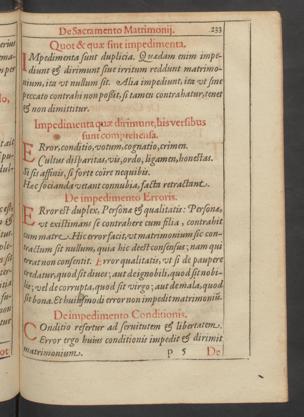 De Sacramento Matrimonij. 233
Quot & quæ sint impedimenta.
IMpedimenta sunt duplicia. Quædam enim impe-
diunt & dirimunt siue irritum reddunt matrimo-
nium, ita vt nullum sit. Alia impediunt, ita vt sine
peccato contrahi non possit, si tamen contrahatur, tenet
& non dimittitur.
Impedimenta quæ dirimunt, his versibus
sunt comprehensa.
ERror, conditio, votum, cognatio, crimen.
Cultus disparitas, vis, ordo, ligamen, honestas.
Si sis affinis, si forte coire nequibis.
Hæc socianda vetant connubia, facta retractant.
De impedimento Erroris.
ERror est duplex, Personæ & qualitatis: Personæ,
vt existimans se contrahere cum filia, contrahit
cum matre. Hic error facit, vt matrimonium sic con-
tractum sit nullum, quia hic deest consensus; nam qui
errat non consentit. Error qualitatis, vt si de paupere
credatur, quod sit diues; aut de ignobili, quod sit nobi-
lis; vel de corrupta, quod sit virgo; aut de mala, quod
sit bona. Et huiusmodi error non impedit matrimoniũ.
De impedimento Conditionis.
COnditio refertur ad seruitutem & libertatem.
Error ergo huius conditionis impedit & dirimit
matrimonium. P 5 De